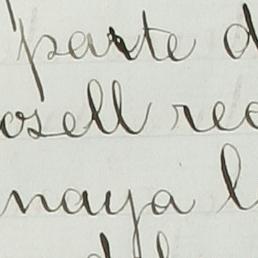 parte d
osell rec
naya l